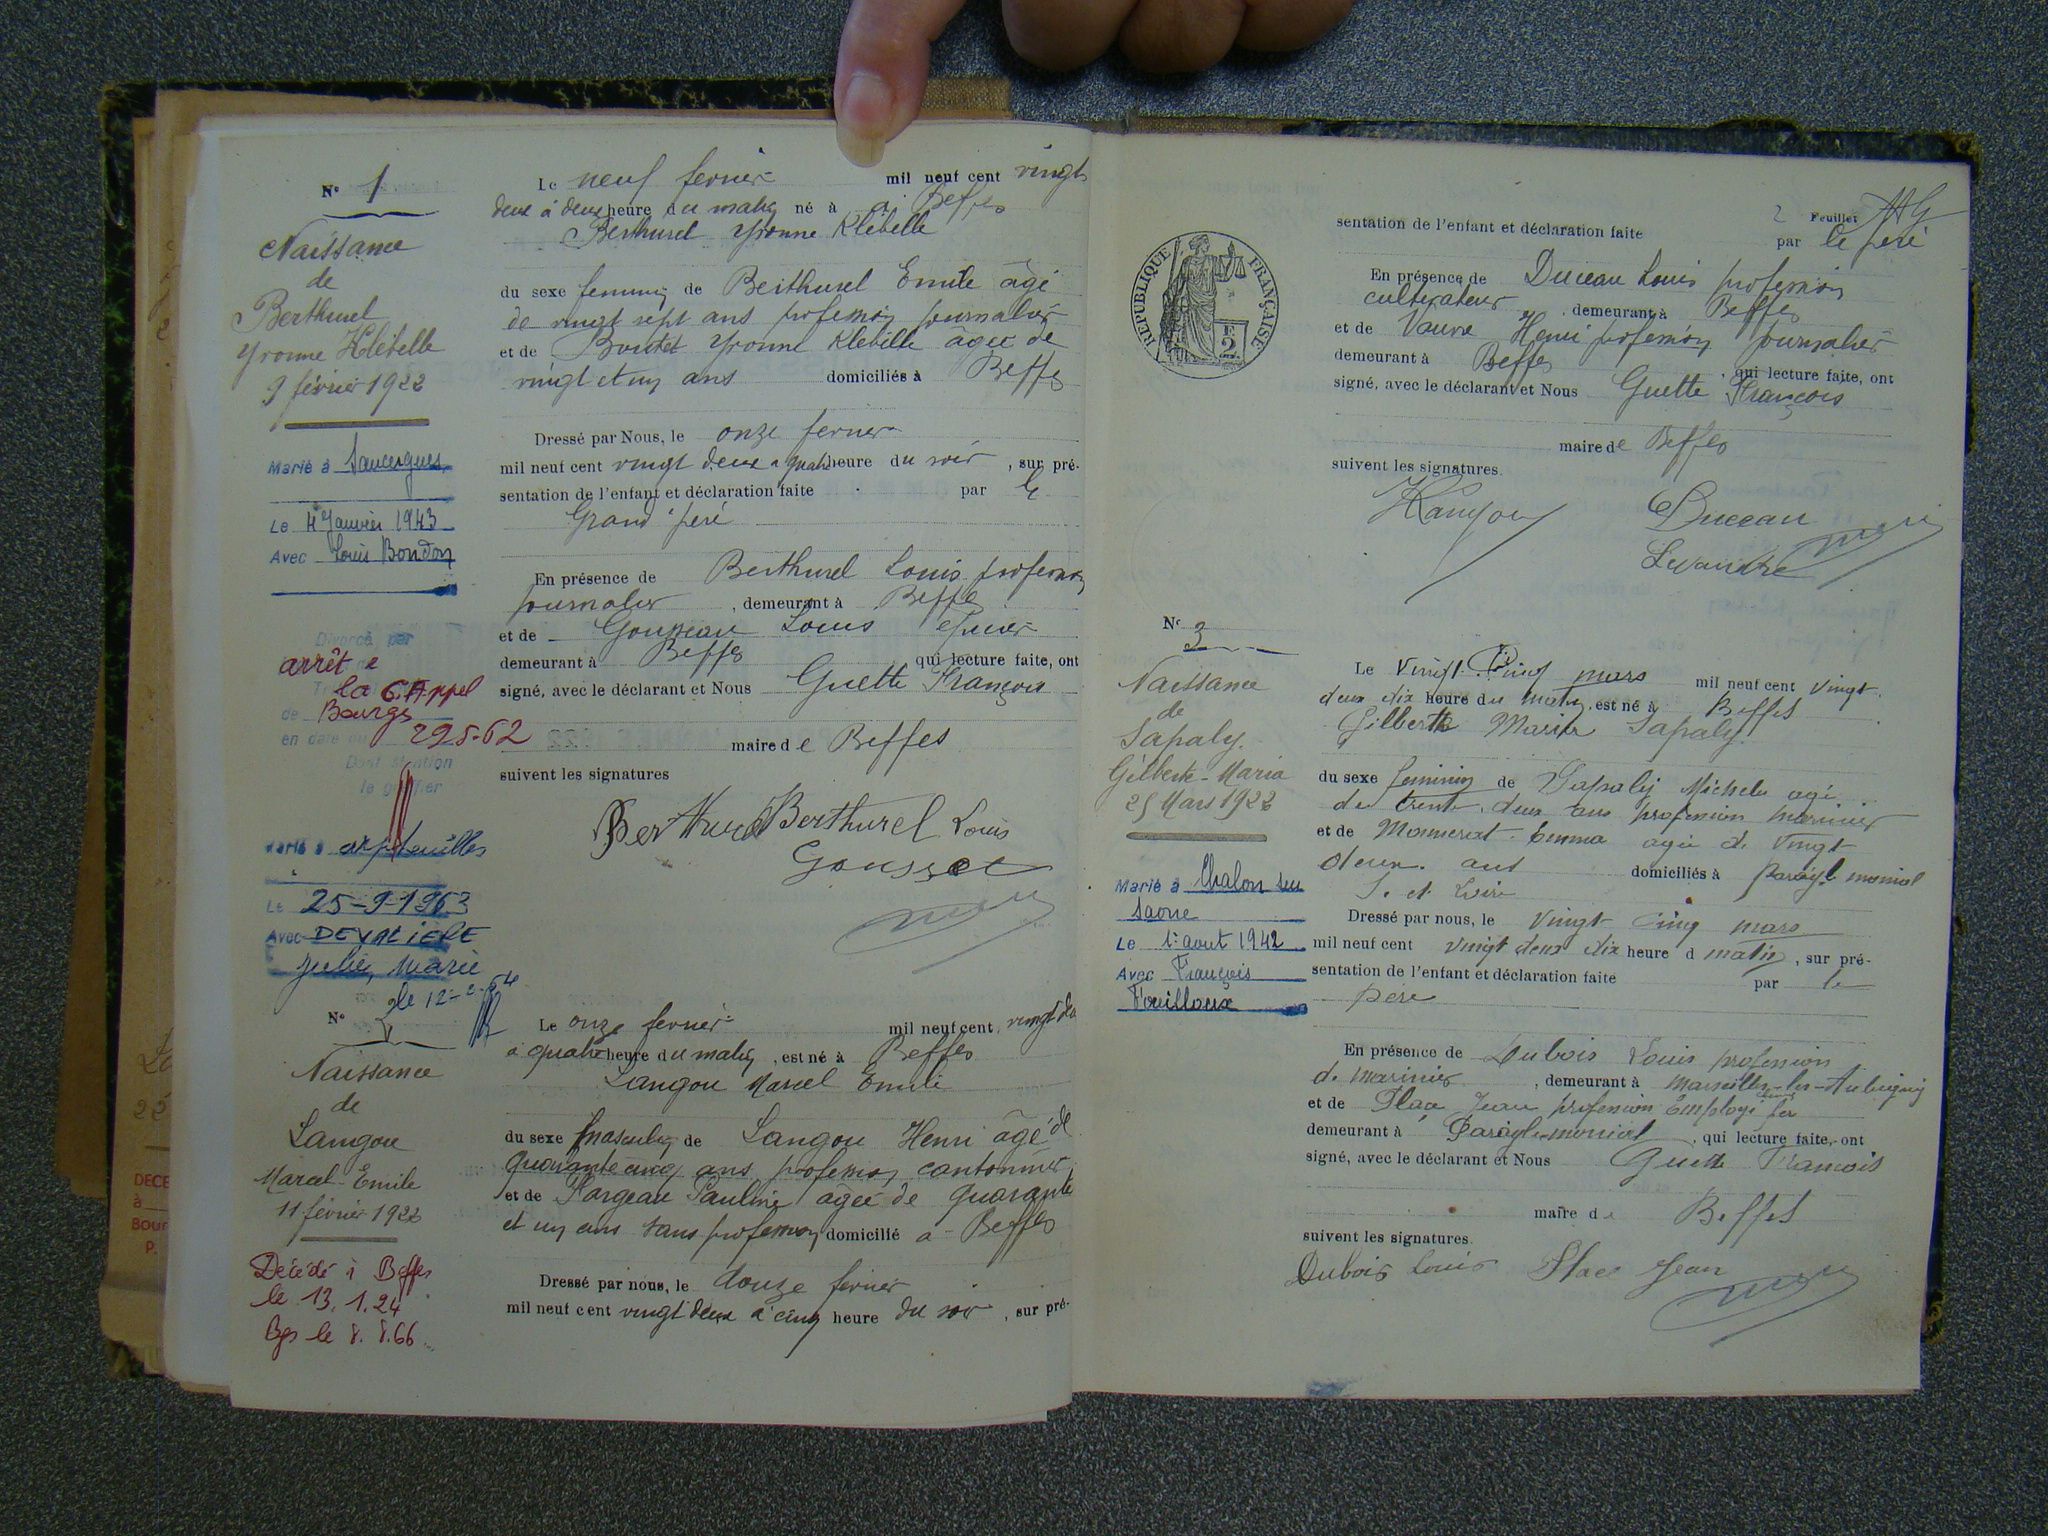 N° 1
Naissance
de
Berthurel
Yvonne Klébelle
9 février 1922
Marié à Sancergues
Le 4 Janvier 1943
Avec Louis Bondon
Divorcé par
arrêt
la C. Appel
de Bourges
en date du 29-5-62
Dont mention
le greffier
Marié à
Le 25-9-1963
Avec
Julie, Marie
le 12-
Le neuf fevrier mil neuf cent vingt
deux à deux heure du matin né à a Beffes
Berthurel Yvonne Klebelle
du sexe feminin de Berthurel Emile âgé
de vingt sept ans profession journalier
et de Boutet Yvonne Klebille âgée de
vingt et un ans domiciliés à Beffes
Dressé par Nous, le onze fevrier
mil neuf cent vingt deux a quatre heure du soir, sur pré-
sentation de l'enfant et déclaration faite par le
Grand père
En présence de Berthurel Louis profession
journalier, demeurant à Beffes
et de Louis
demeurant à Beffes qui lecture faite, ont
signé, avec le déclarant et Nous Guette François
maire de Beffes
suivent les signatures
Berthurel Berthurel Louis
Gousset
N°
Naissance
de
Langou
Marcel-Emile
11 février 1922
Décédé à Beffes
le 13.1.24
Bgs le 8.8.66
Le onze fevrier mil neuf cent vingt deux
a quatre heure du matin, est né à Beffes
Langou Marcel Emile
du sexe masculin de Langou Henri âgé de
quarante cinq ans profession cantonnier
et de Pauline âgée de quarante
et un ans sans profession domicilié a Beffes
Dressé par nous, le douze fevrier
mil neuf cent vingt deux à cinq heure du soir, sur pré-
2 Feuillet
sentation de l'enfant et déclaration faite par le père
RÉPUBLIQUE FRANÇAISE
En présence de Duceau Louis profession
cultivateur, demeurant à Beffes
et de Vauvre Henri profession journalier
demeurant à Beffes, qui lecture faite, ont
signé, avec le déclarant et Nous Guette François
maire de Beffes
suivent les signatures.
HLangou Duceau
N° 3
Naissance
de
Sapaly
Gilberte-Maria
25 Mars 1922
Marié à Chalon sur
Saone
Le 1er aout 1942
Avec François
Fouilloux
Le vingt cinq mars mil neuf cent vingt
deux dix heure du matin, est né à Beffes
Gilberte Maria Sapaly
du sexe feminin de Sapaly Michel agé
de trente deux ans profession marinier
et de Emma agée de vingt
deux ans domiciliés à Paray le monial
S. et Loire
Dressé par nous, le vingt cinq mars
mil neuf cent vingt deux dix heure d matin, sur pré-
sentation de l'enfant et déclaration faite par le
père
En présence de Dubois Louis profession
de marinier, demeurant à Marseilles-les-Aubigny
et de Place Jean profession Employé
demeurant à Paray le monial, qui lecture faite, ont
signé, avec le déclarant et Nous Guette Francois
maire de Beffes
suivent les signatures.
Dubois Louis Place Jean